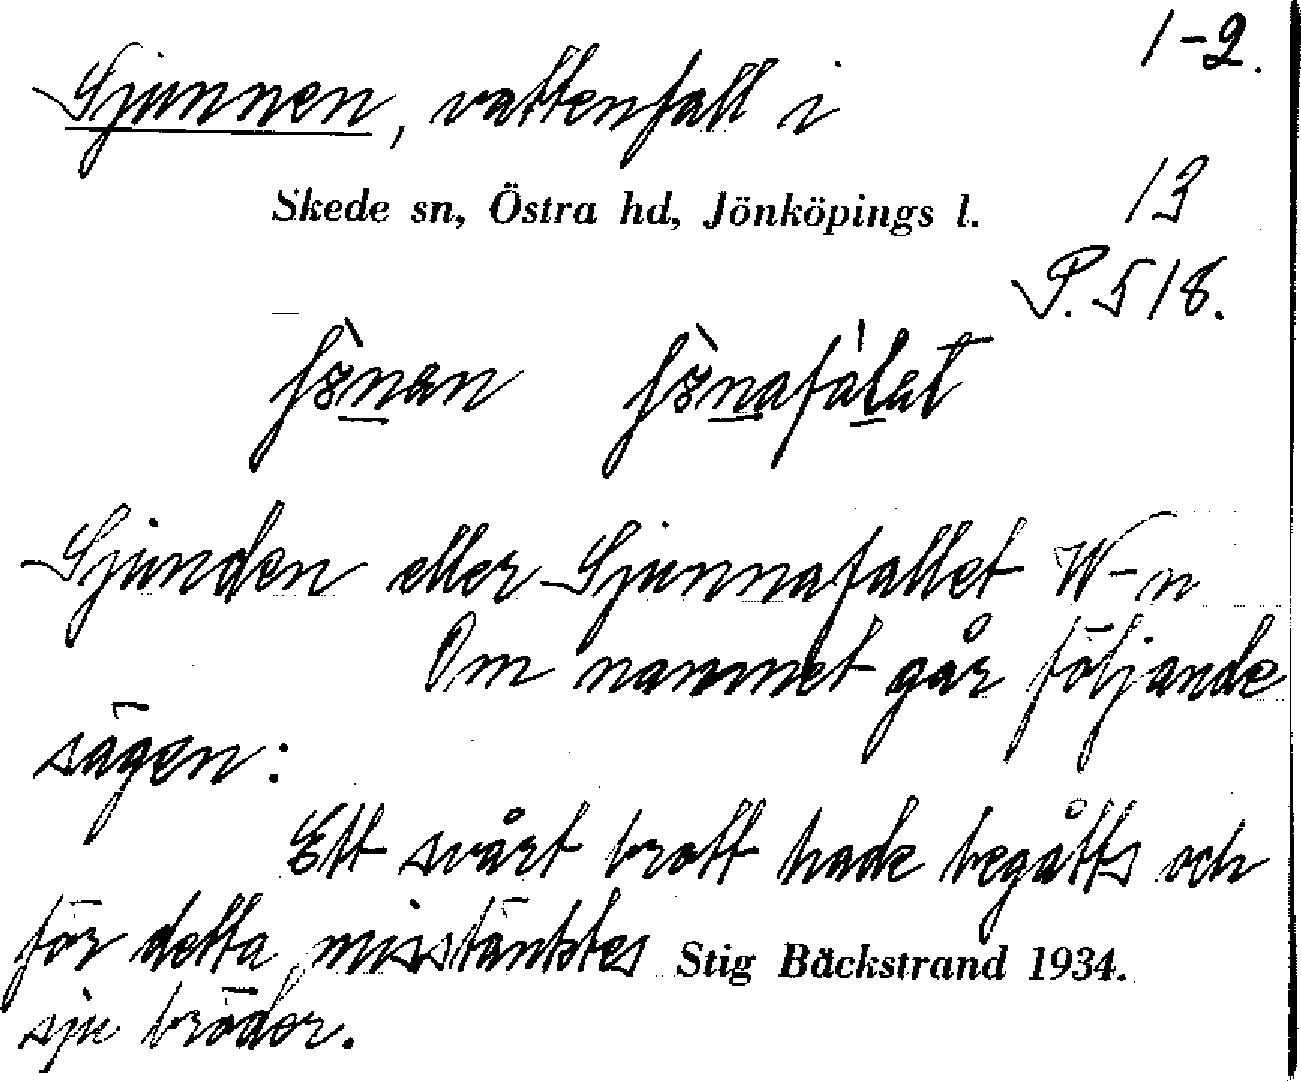 1-2.
Sjunnen, vattenfall i
Skede sn, Östra hd, Jönköpings l.
13
P. 518.
Sjunden eller Sjunnafallet W-n
Om namnet går följande
sägen:
Ett svårt brott hade begåtts och
för detta misstänktes
Stig Bäckstrand 1934.
sju bröder.